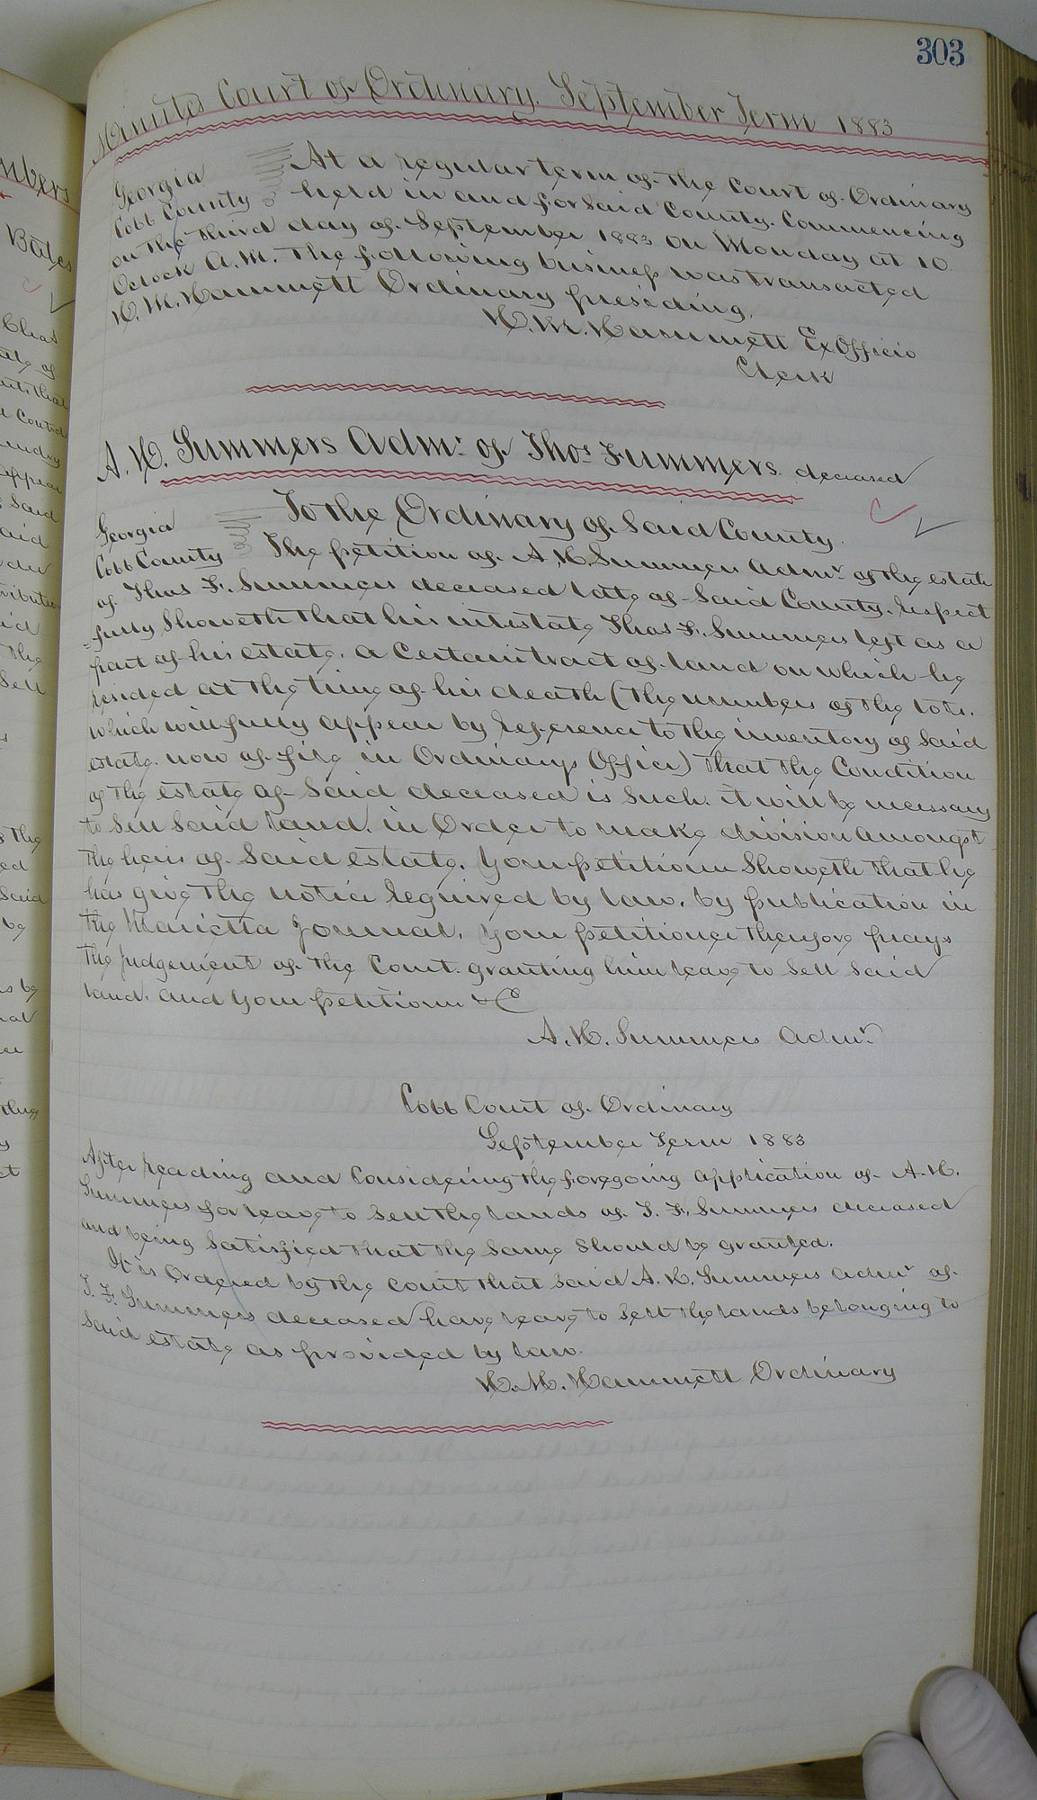 303
Minutes Court of Ordinary. September Term 1883
Georgia
Cobb County
At a regular term of the Court of Ordinary
held in and for said County. Commencing
on the third day of September 1883 on Monday at 10
Oclock A.M. The following business was transacted
H. M. Hammett Ordinary presiding.
H. M. Hammett Ex Officio
Clerk
A. H. Summers Admr. of Thos F Summers deceased
Georgia
Cobb County
To the Ordinary of Said County.
The petition of A H Summers Admr of the estate
of Thos F. Summers deceased late of Said County. respect
=fully Showeth that his intestate Thos F. Summers left as a
part of his estate. a Certain tract of land on which he
resided at the time of his death (the numbers of the lots.
which will fully appear by reference to the inventory of Said
estate. now of file in Ordinarys Office) that the Condition
of the estate of Said deceased is Such. it will be necessary
to Sell Said land. in Order to make division amongst
the heirs of Said estate. Your petitioner Showeth that he
has give the notice required by law. by publication in
the Marietta Journal. Your petitioner therefore prays
the judgement of the Court. granting him leave to Sell Said
land. and your petitioner &C
A. H. Summers Admr
Cobb Court of Ordinary
September Term 1883
After reading and Considering the foregoing application of A. H.
Summers for leave to Sell the lands of T. F. Summers deceased
and being Satisfied that the Same Should be granted.
It is Ordered by the Court that Said A. H. Summers Admr of
T. F. Summers deceased have leave to Sell the lands belonging to
Said estate as provided by law.
H. M. Hammett Ordinary